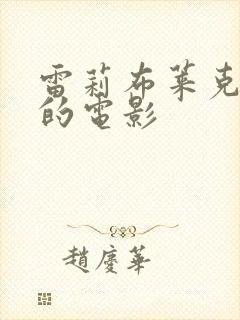 雷莉布萊克
的電影
趙慶華